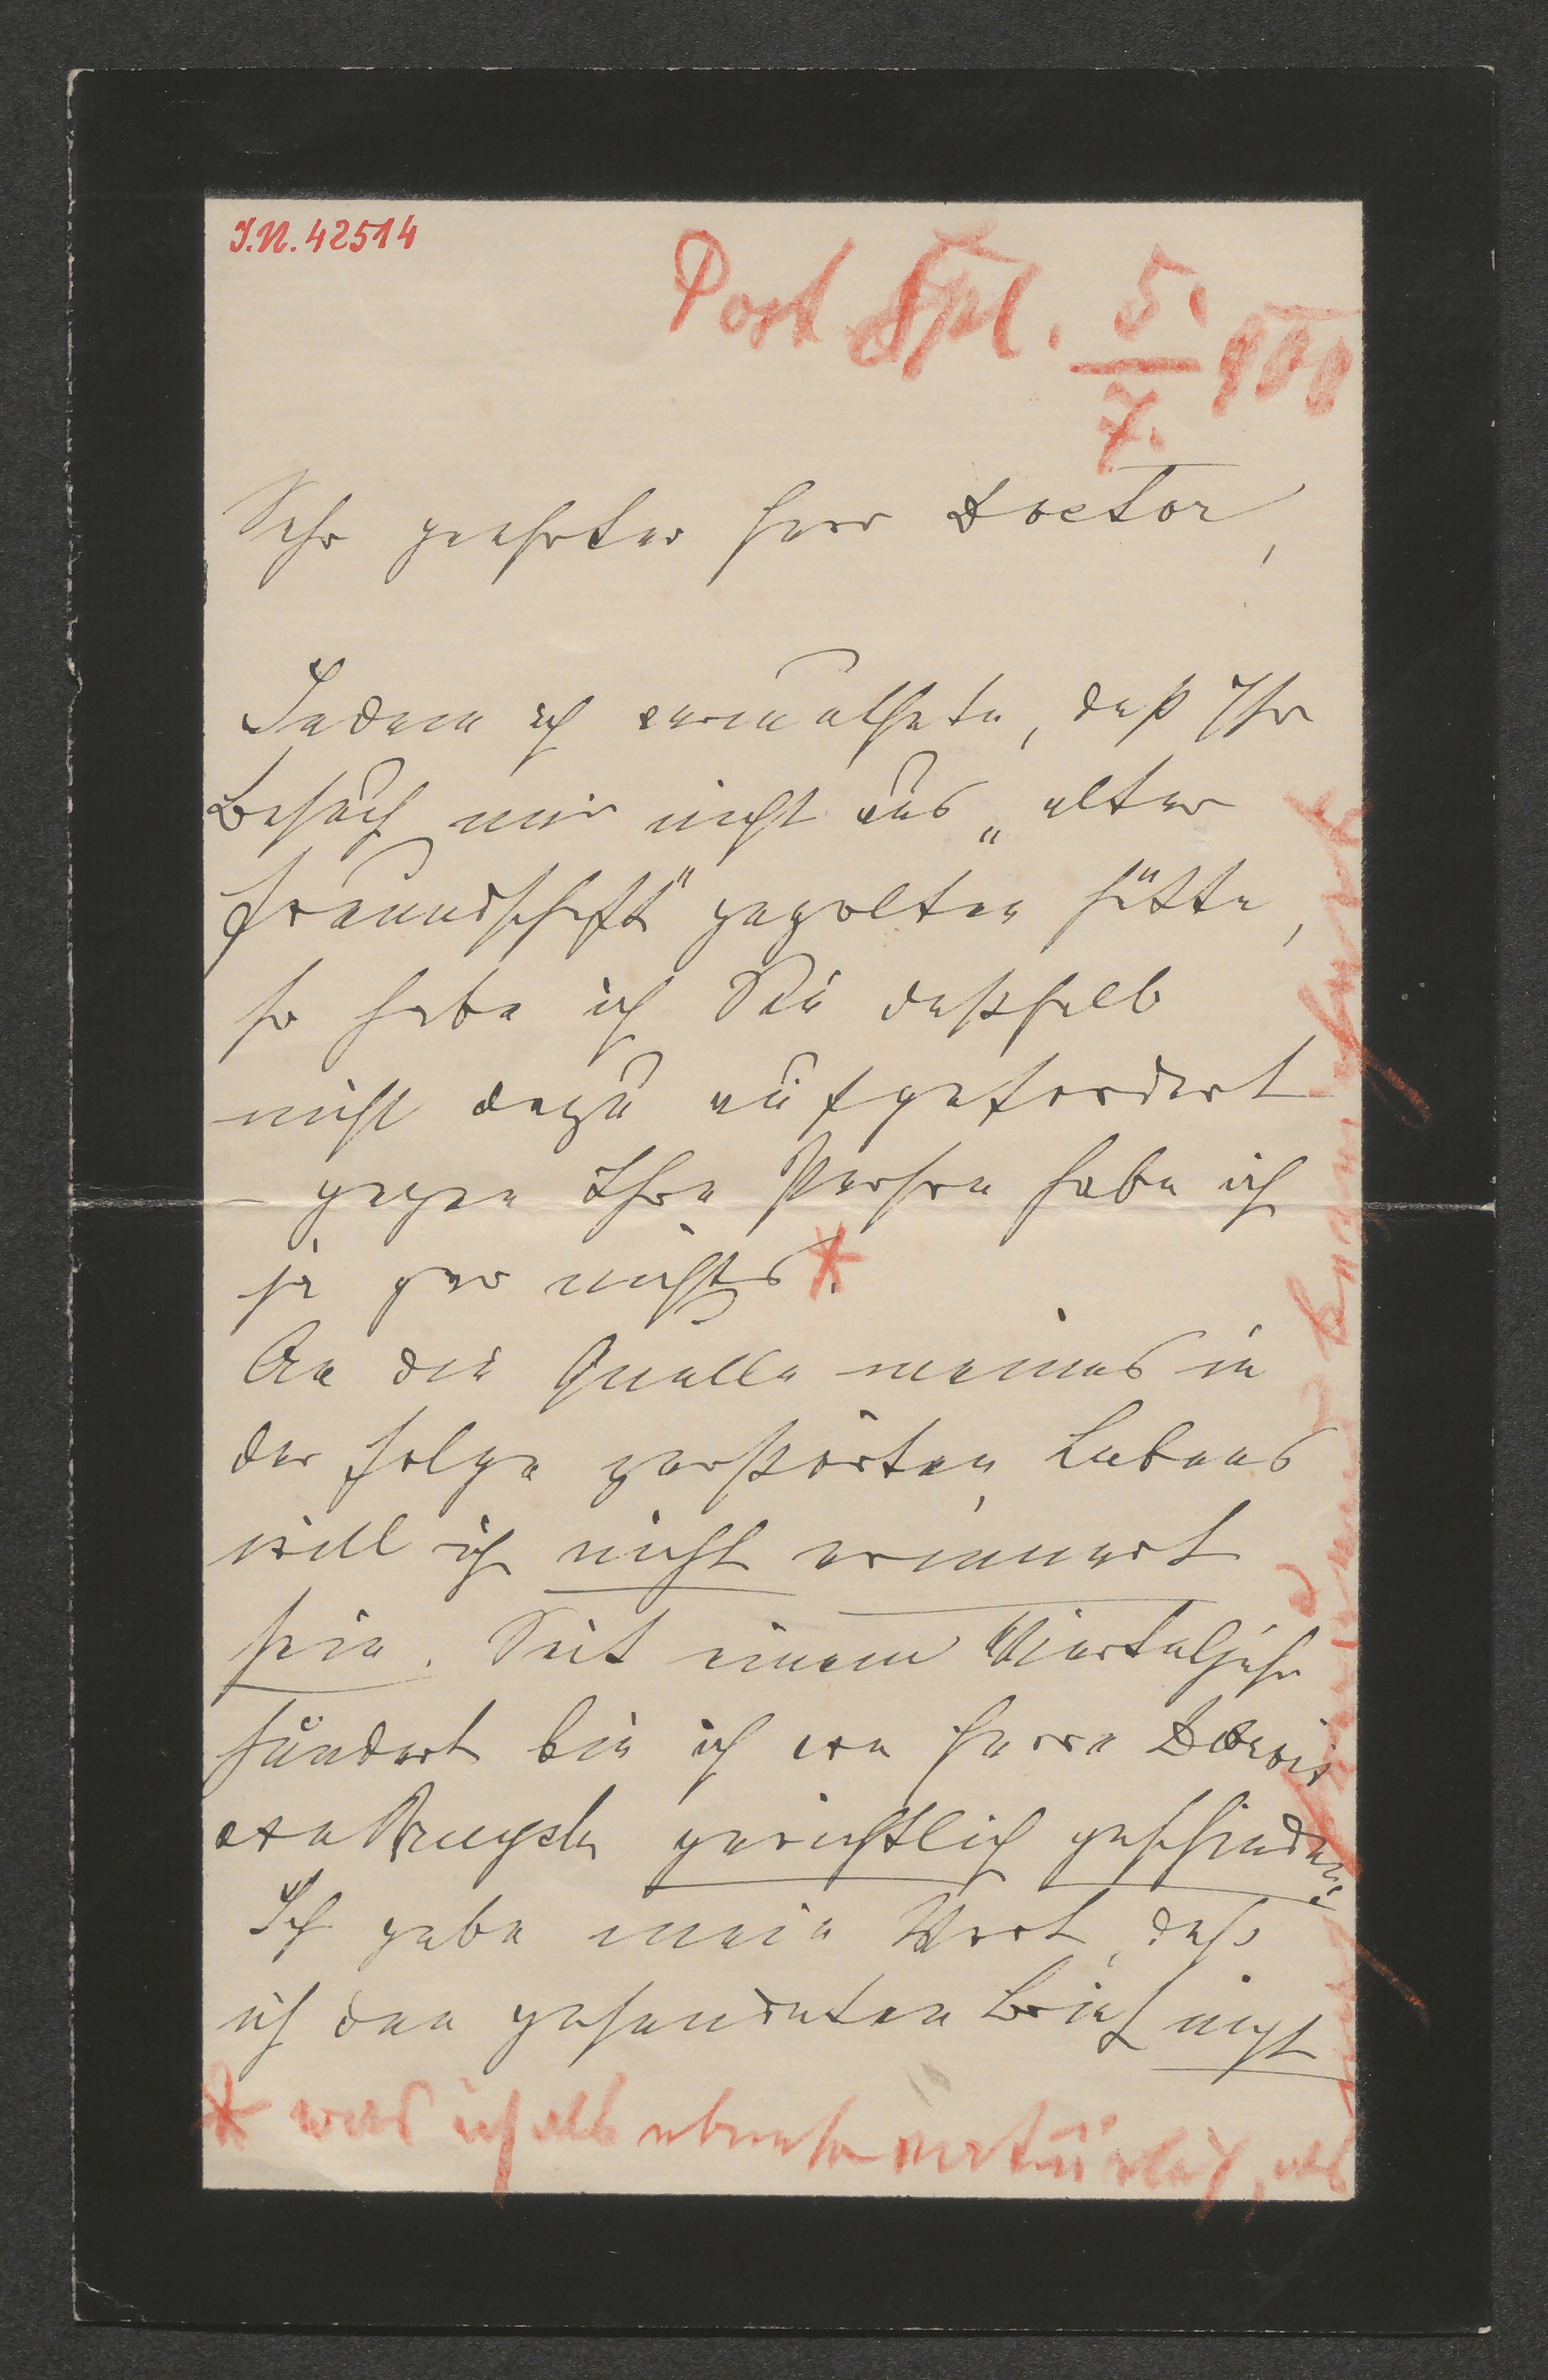 I.N. 42514
Post Stpl. 5./7. 900
Sehr geehrter Herr Doctor,
Indem ich vermuthete, daß Ihr
Besuch mir nicht aus „alter
Freundschaft" gegolten hätte,
so habe ich Sie deßhalb
nicht dazu aufgefordert
– gegen Ihre Person habe ich
ja gar nichts.*
An die Quelle meines in
der Folge zerstörten Lebens
will ich nicht erinnert
sein. Seit einem Vierteljahr
hundert bin ich von Herrn
von gerichtlich geschieden.
Ich gebe mein Wort, daß
ich den gesendeten Brief nicht
* was ich als ebenso natürlich, als